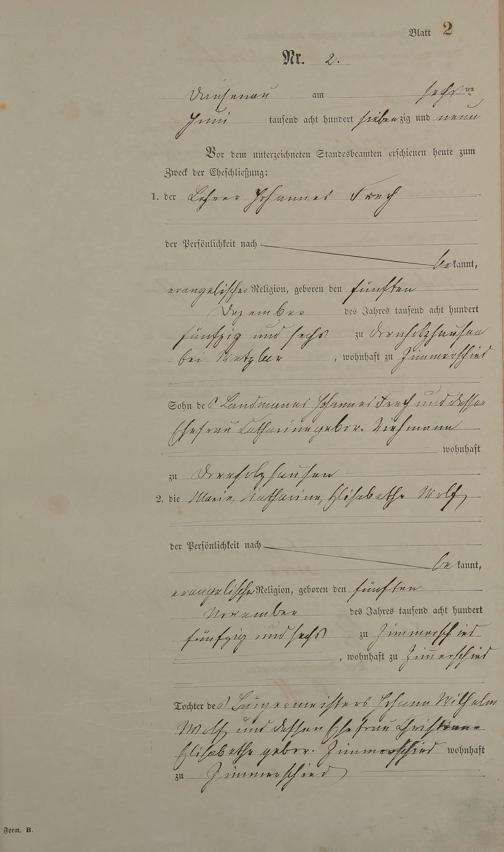 Blatt 2
Nr. 2.
Dausenau am sechsten
Juni tausend acht hundert siebenzig und neun
Vor dem unterzeichneten Standesbeamten erschienen heute zum
Zweck der Eheschließung:
1. der Lehrer Johannes Frech
der Persönlichkeit nach
be kannt,
evangelischer Religion, geboren den fünften
Dezember des Jahres tausend acht hundert
fünfzig und sechs zu
bei , wohnhaft zu Zimmerschied
Sohn des Landmanns Johannes Frech und dessen
Ehefrau Catharine gebor.
wohnhaft
zu
2. die Marie, Katharine, Elisabethe Wolf
der Persönlichkeit nach
be kannt,
evangelischer Religion, geboren den fünften
November des Jahres tausend acht hundert
fünfzig und sechs zu Zimmerschied
, wohnhaft zu Zimmerschied
Tochter des Bürgermeisters Johann Wilhelm
Wolf und dessen Ehefrau
Elisabethe gebor. Zimmerschied wohnhaft
zu Zimmerschied
Form. B.